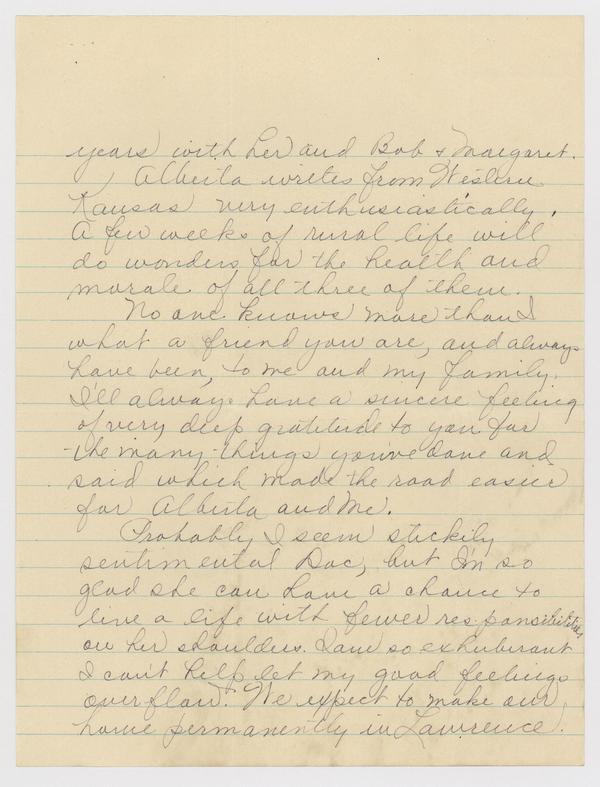 years with her and Bob & Margaret.
Alberta writes from Western
Kansas very enthusiastically.
A few weeks of rural life will
do wonders for the health and
morale of all three of them.
No one knows more than I
what a friend you are, and always
have been, to me and my family.
I'll always have a sincere feeling
of very deep gratitude to you for
the many things you've done and
said which made the road easier
for Alberta and Me.
Probably I seem stickily
sentimental Doc, but I'm so
glad she can have a chance to
live a life with fewer responsibilities
on her shoulders. I am so exhuberant
I can't help let my good feelings
overflow. We expect to make our
home permanently in Lawrence.